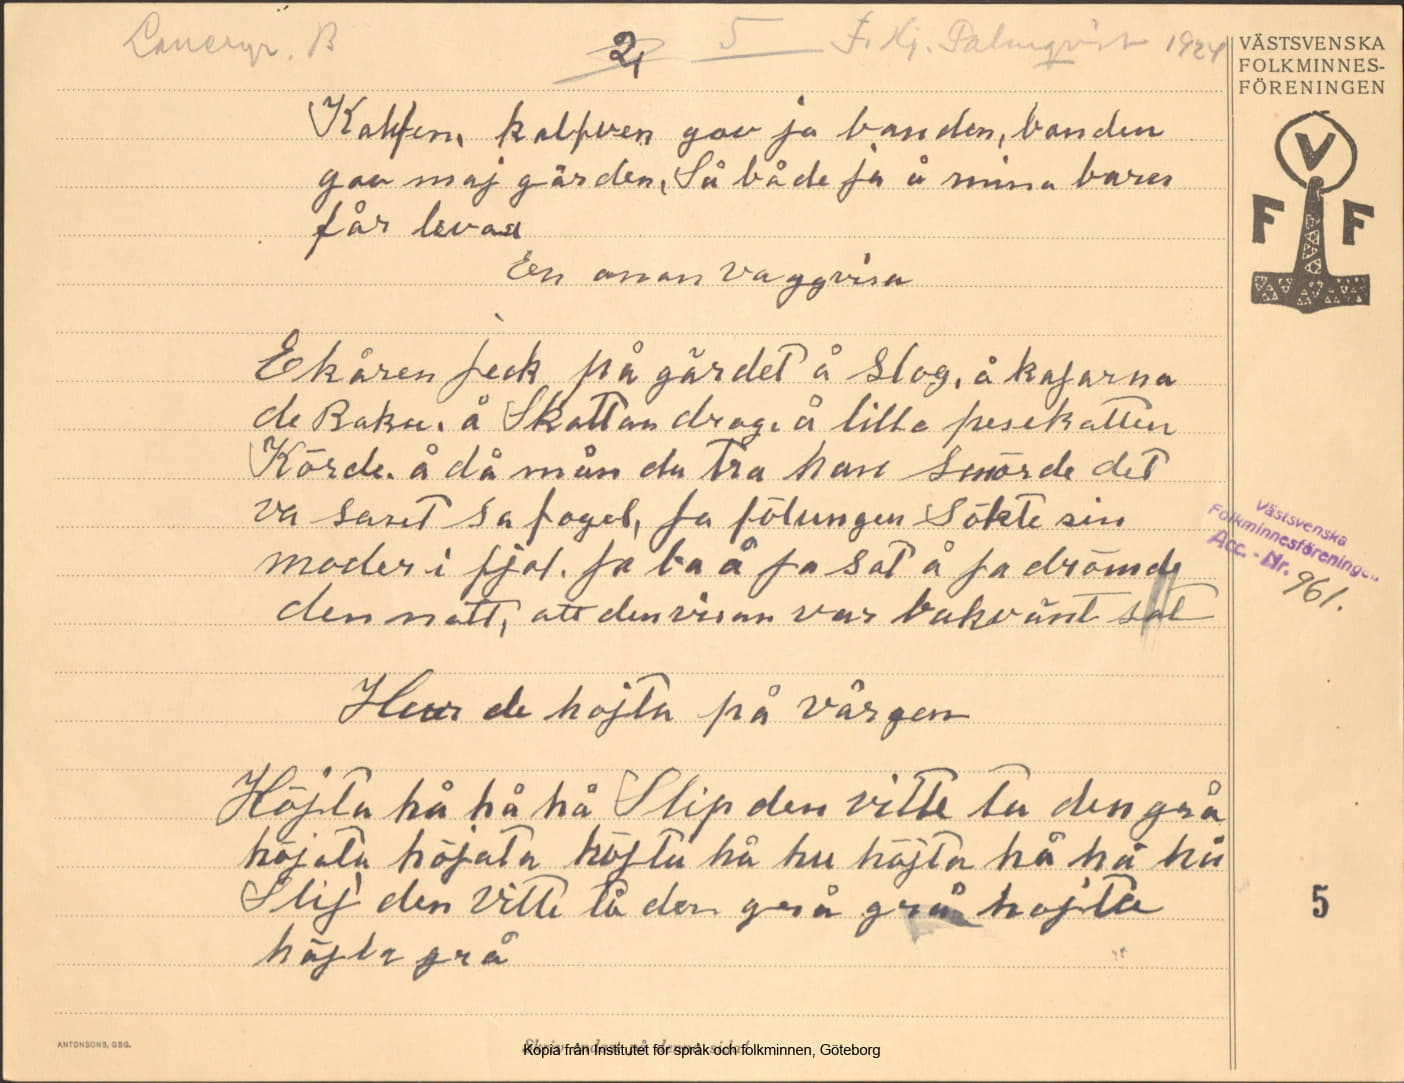 2, 5 F. Hj. Palmqvist 1924
VÄSTSVENSKA
FOLKMINNES-
FÖRENINGEN
V
F F
Kalfen, kalfven gav ja banden, banden
gav maj gärden, Så både ja å mina barn
får leva
En anan vaggvisa
Ekåren jeck på gärdet å slog, å kajarna
de Raka. å Skattan drog. å lilla pesekatten
Körde. å då mån du tra han smörde det
va sant sa fogel, ja fölungen Sökte sin
moder i fjol. ja la å ja sat å ja drömde
den natt, att den visan var bakvänt sat
Hur de hojta på vårgen
Höjta hå hå hå Slip den vitte ta den grå
höjata höjata höjta hå hu höjta hå hå hå
Slip den vitte tå den grå grå hojta
höjta grå
Västsvenska
Folkminnesföreningen
Acc. - Nr. 961.
5
ANTONSONS, GBG.
Skriv endast på denna sida!
Kopia från Institutet för språk och folkminnen, Göteborg